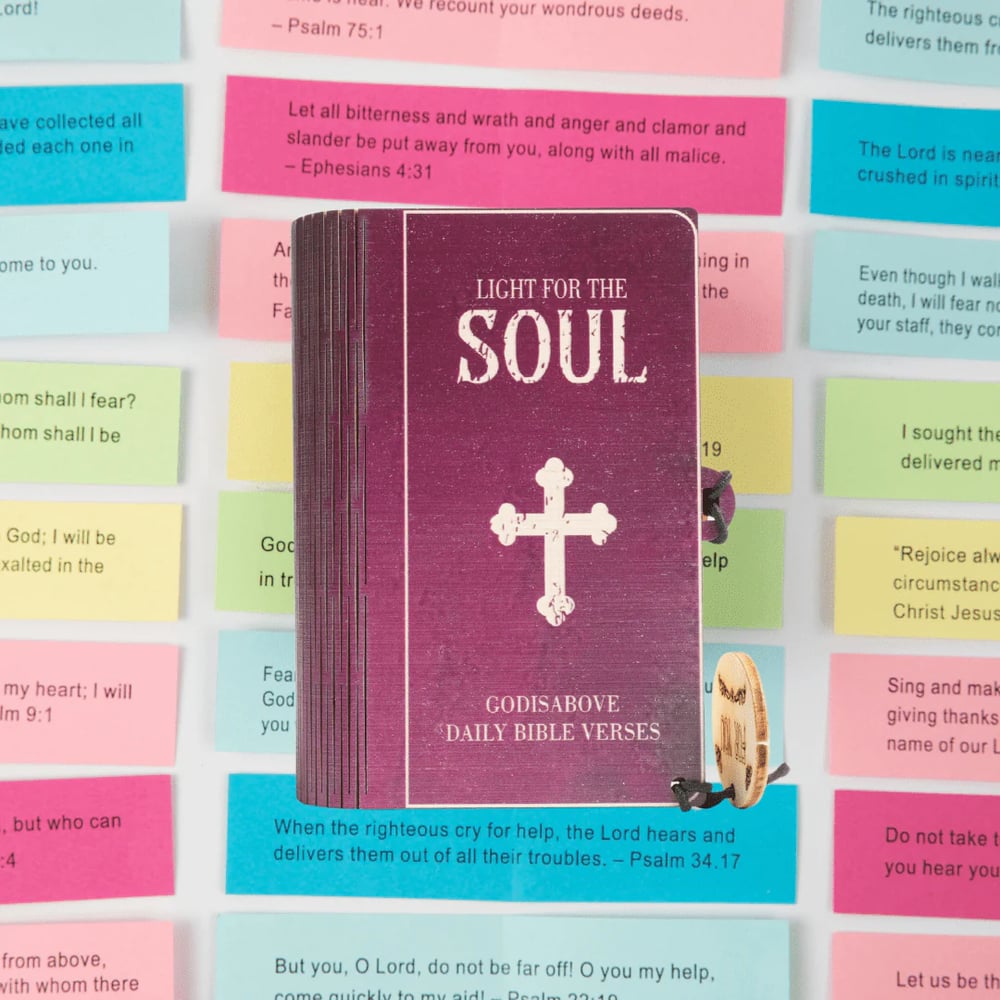 ord!
We recount your wondrous deeds.
– Psalm 75:1
The righteous
delivers them
ave collected all
each one in
Let all bitterness and wrath and anger and clamor and
slander be put away from you, along with all malice.
– Ephesians 4:31
The Lord is near
crushed in spirit
ome to you.
ing in
the
Even though I walk
death, I will fear
your staff, they
LIGHT FOR THE
SOUL
om shall I fear?
hom shall I be
19
I sought the
delivered
God; I will be
xalted in the
God
in
elp
"Rejoice
circumstanc
Christ Jesus
my heart; I will
lm 9:1
Fea
God
you
Sing and
giving thanks
name of our
GODISABOVE
DAILY BIBLE VERSES
, but who can
:4
When the righteous cry for help, the Lord hears and
delivers them out of all their troubles. – Psalm 34.17
Do not take
you hear you
from above,
with whom there
But you, O Lord, do not be far off! O you my help,
come quickly to my aid! – Psalm 22:19
Let us be